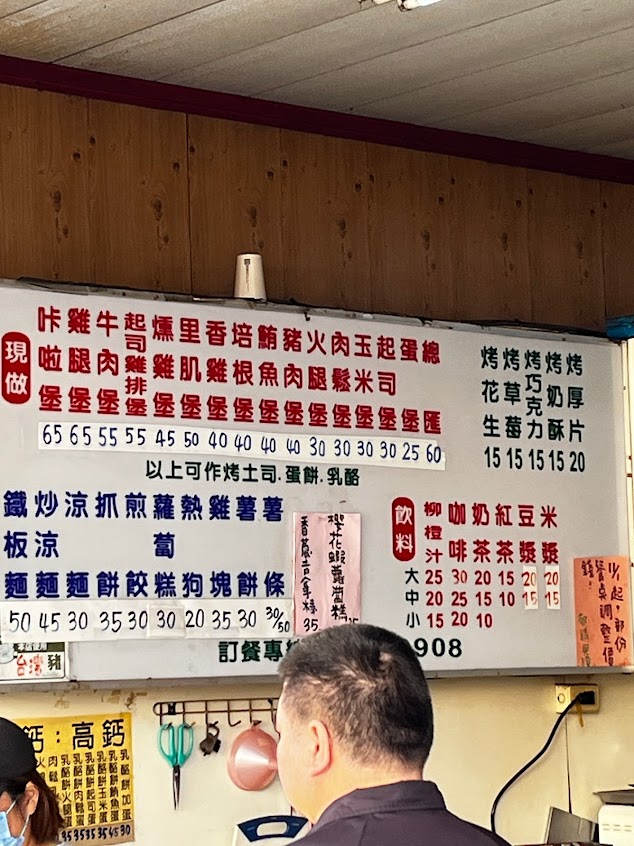 現做
咔啦堡 65
雞腿堡 65
牛肉堡 55
起司雞排堡 55
燻雞堡 45
里肌堡 50
香雞堡 40
培根堡 40
鮪魚堡 40
豬肉堡 40
火腿堡 30
肉鬆堡 30
玉米堡 30
起司堡 30
蛋堡 25
總匯 60
以上可作烤土司.蛋餅.乳酪
烤花生 15
烤草莓 15
烤巧克力 15
烤奶酥 15
烤厚片 20
鐵板麵 50
炒涼麵 45
涼麵 30
抓餅 35
煎餃 30
蘿蔔糕 30
熱狗 20
雞塊 35
薯餅 30
薯條 30/50
櫻花蝦蘿蔔糕
35
飲料
柳橙汁 咖啡 奶茶 紅茶 豆漿 米漿
大 25 30 20 15 20 20
中 20 25 15 10 15 15
小 15 20 10
訂餐專線
908
11/1起,部份
餐點調整價
錢!
台灣豬
鈣:高鈣